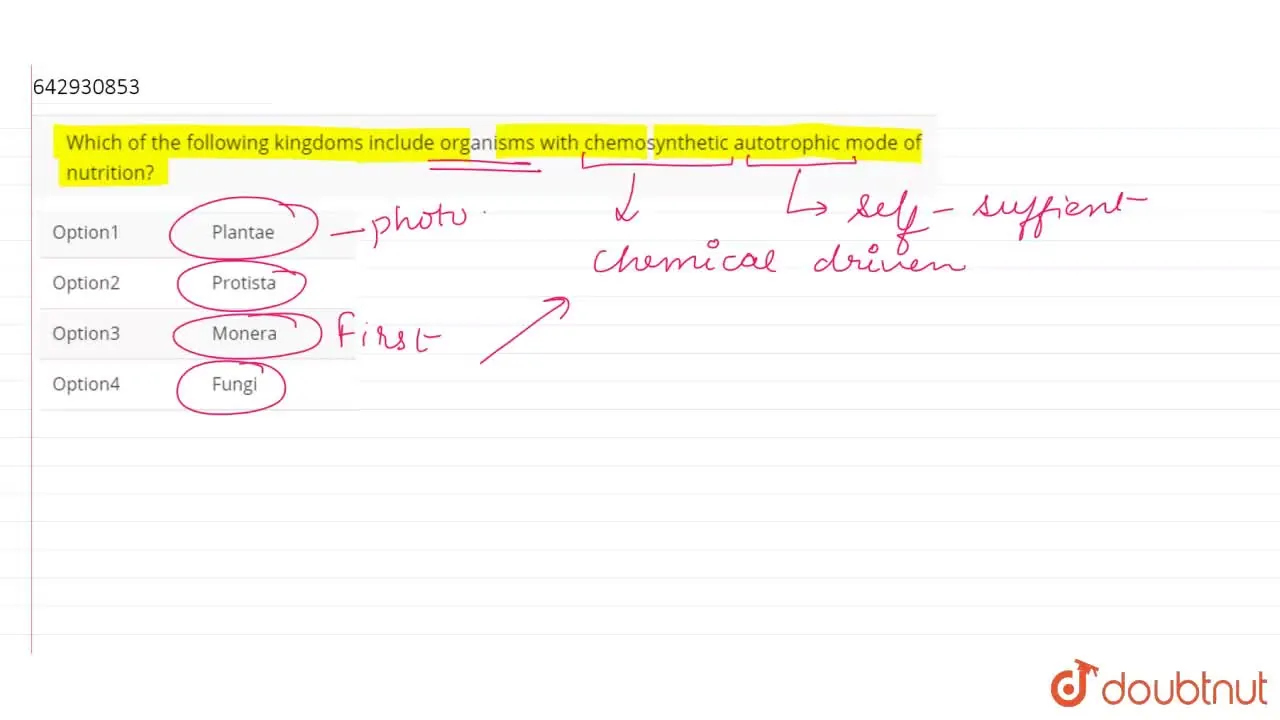 642930853
Which of the following kingdoms include organisms with chemosynthetic autotrophic mode of
nutrition?
self-suffient
Option1 Plantae - photo.
chemical driven
Option2 Protista
Option3 Monera First
Option4 Fungi
doubtnut